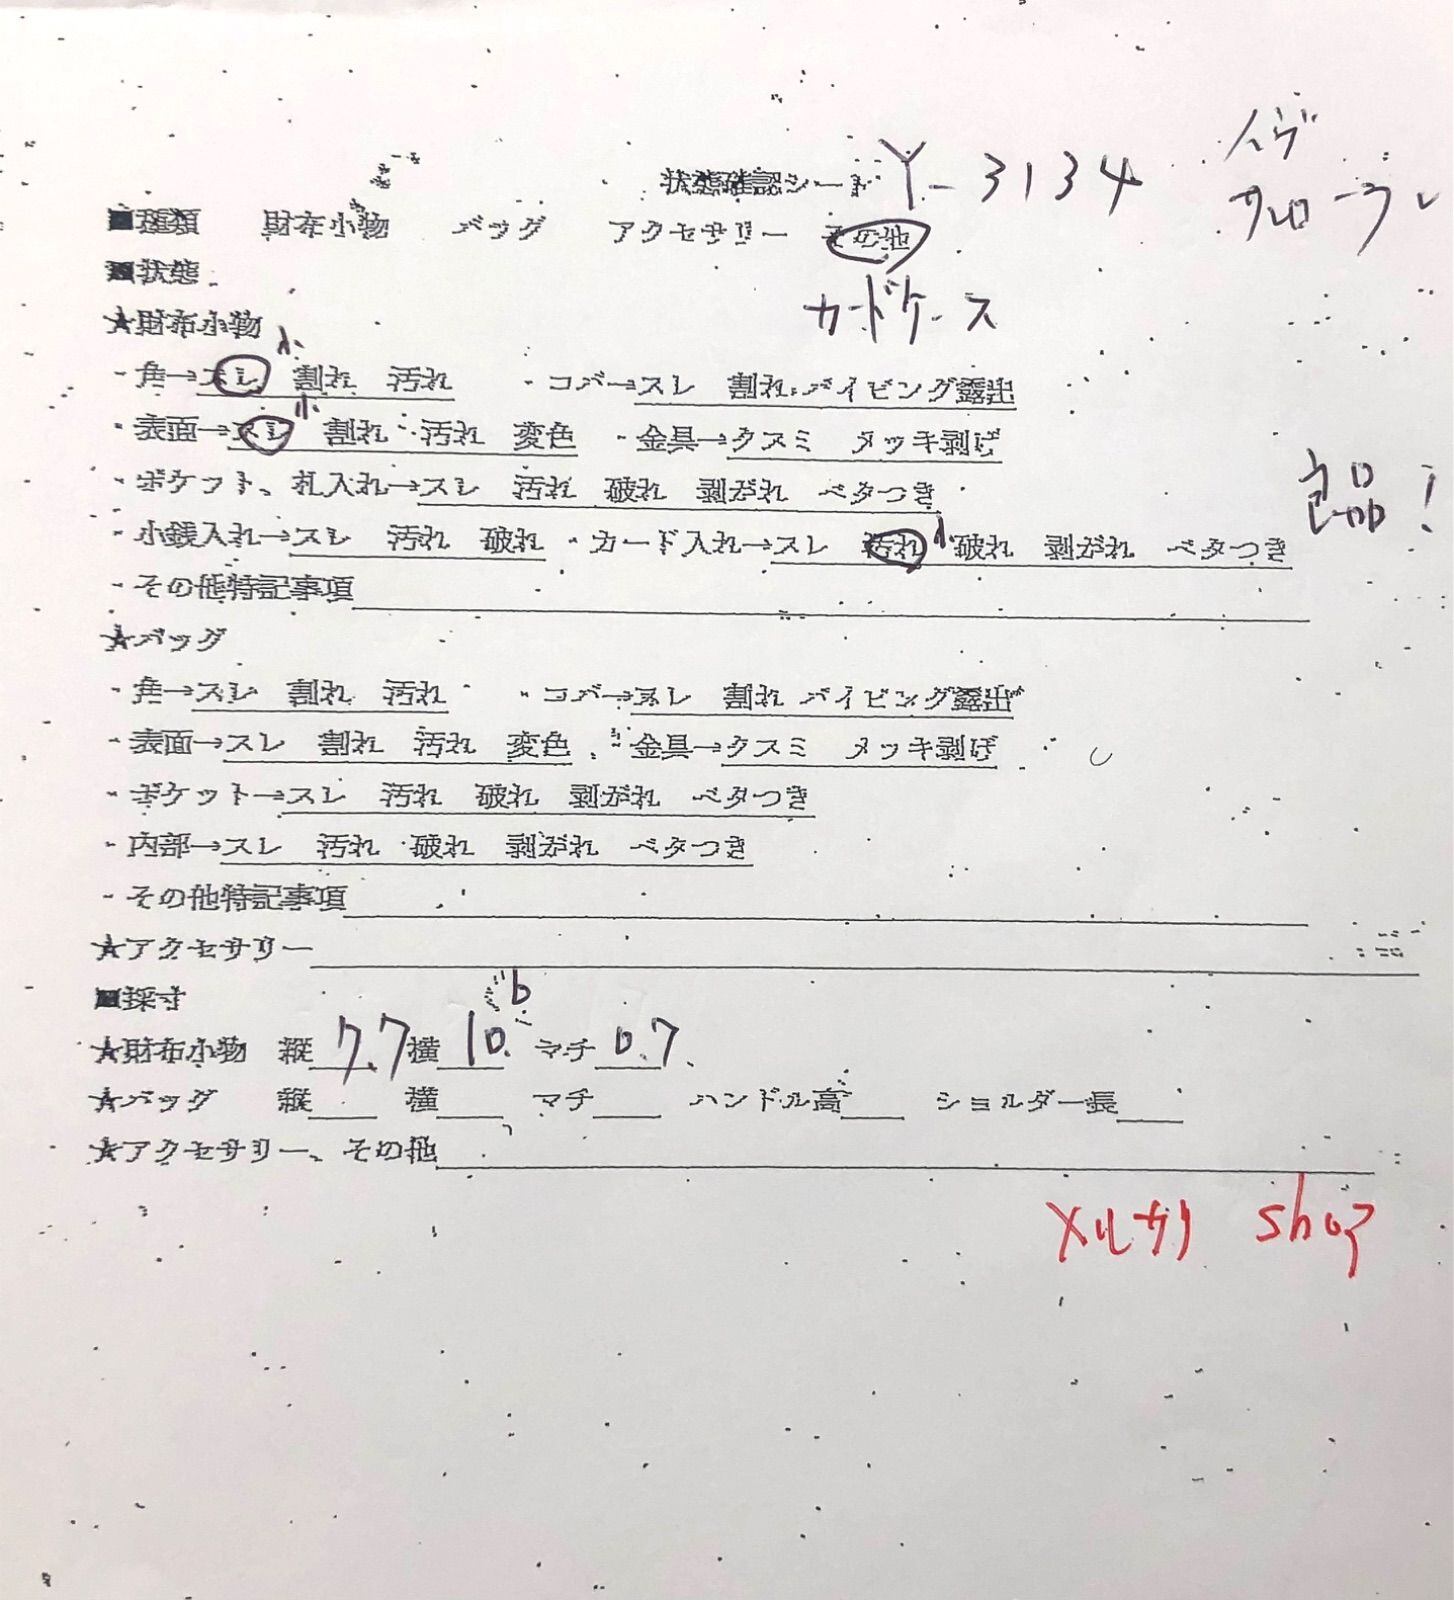 状態確認シート Y-3134
イヴ
サンローラン
■種類 財布小物 バッグ アクセサリー その他
カードケース
■状態
★財布小物
・角→スレ 小 割れ 汚れ ・コバ→スレ 割れ パイピング露出
・表面→スレ 小 割れ 汚れ 変色 ・金具→クスミ メッキ剥げ
・ポケット、札入れ→スレ 汚れ 破れ 剥がれ ベタつき
良品!
・小銭入れ→スレ 汚れ 破れ ・カード入れ→スレ 汚れ 小 破れ 剥がれ ベタつき
・その他特記事項
★バッグ
・角→スレ 割れ 汚れ ・コバ→スレ 割れ パイピング露出
・表面→スレ 割れ 汚れ 変色 ・金具→クスミ メッキ剥げ
・ポケット→スレ 汚れ 破れ 剥がれ ベタつき
・内部→スレ 汚れ 破れ 剥がれ ベタつき
・その他特記事項
★アクセサリー
■採寸
★財布小物 縦 7.7 横 10. マチ 0.7
★バッグ 縦 横 マチ ハンドル高 ショルダー長
★アクセサリー、その他
メルカリ shop